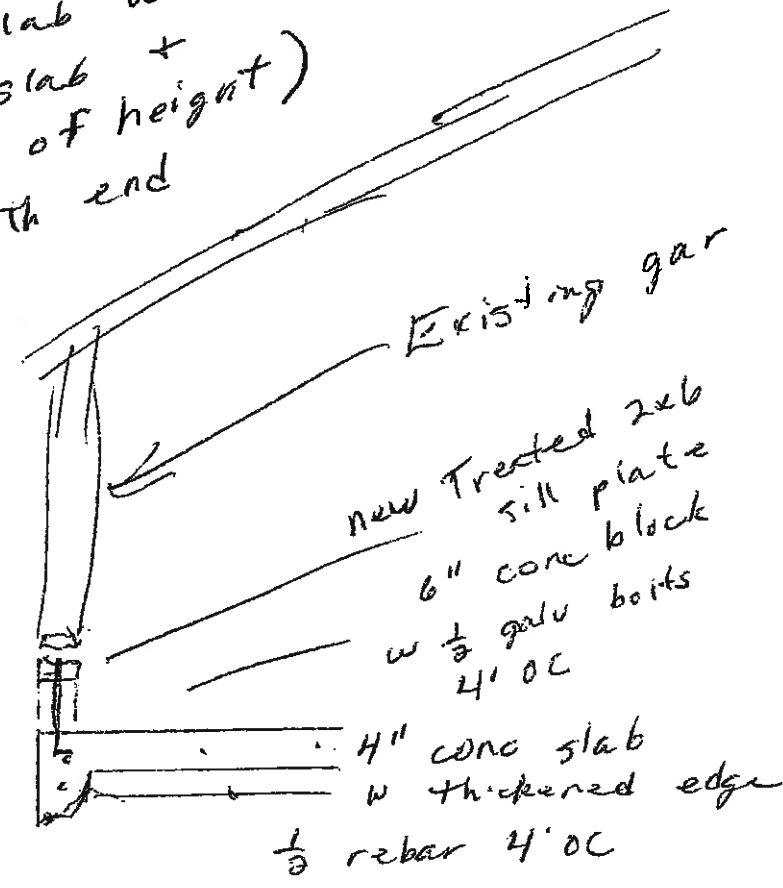 lab w
slab +
of height)
th end
Existing gar
new Treated 2x6
sill plate
6" conc block
w 1/2 galv bolts
4' OC
4" conc slab
w thickened edge
1/2 rebar 4' OC